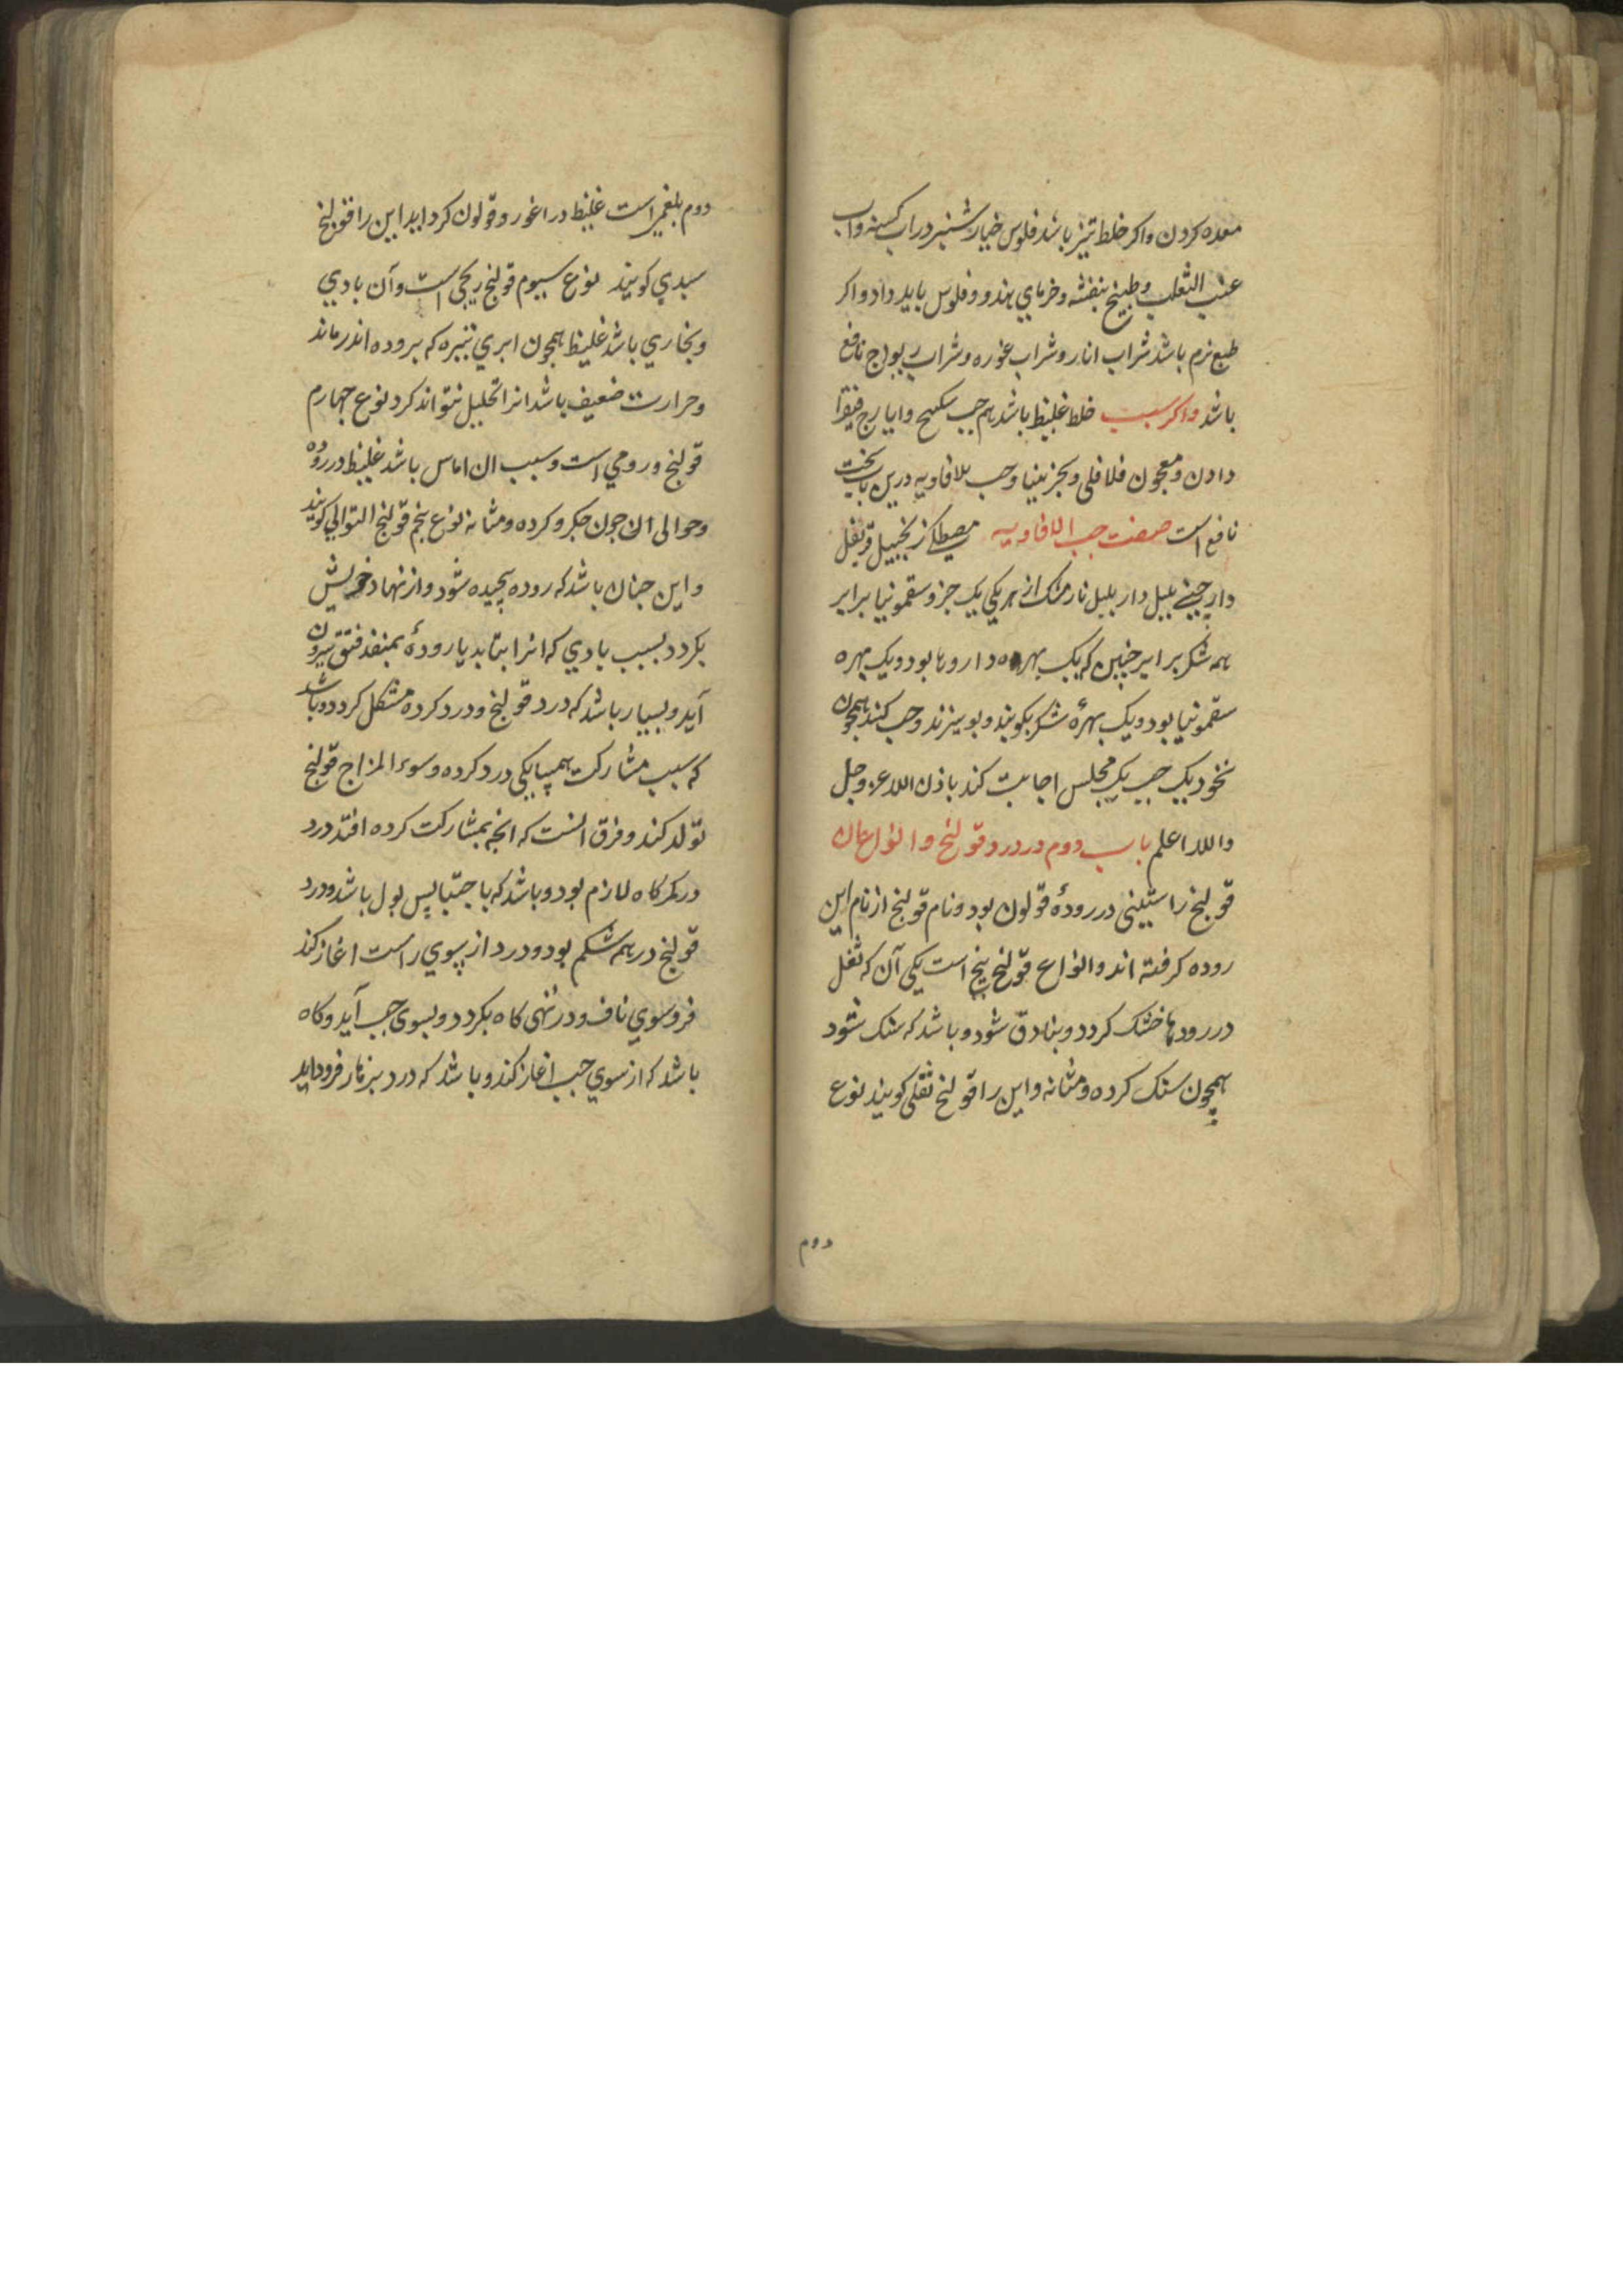 معده کردن واکر خلط تیز باشد فلوس خیارشنبر دراب کسنه واب
عنب الثعلب وطبیخ بنفشه وخرمای هندو وفلوس باید داد واکر
طبع نرم باشد شراب انار وشراب غوره وشراب ریواج نافع
باشد واکر سبب خلط غلیظ باشد هم حب سکبنج وایارج فیقرا
دادن ومعجون فلافلی وبجزینیا وحب بلافاویه درین باب سخت
نافع است صفت حب الافاویه مصطکی زنجبیل قرنفل
دارچینی بلبل دار بلبل نارمشک از هر یکی یک جزو سقمونیا برابر
همه شکر برابر جنین که یک بهره داروها بود ویک بهره
سقمونیا بود ویک بهرهٔ شکر بکوبند وببیزند وحب کنند همجون
نخود یک حب یک مجلس اجابت کند باذن الله عز وجل
والله اعلم باب دوم در درد قولنج وانواع ان
قولنج راستینی در رودهٔ قولون بود ونام قولنج از نام این
روده کرفته اند وانواع قولنج پنج است یکی آن که ثفل
در رودها خشک کردد وبنادق شود وباشد که سنک شود
همچون سنک کرده ومثانه واین را قولنج ثفلی کویند نوع
دوم
دوم بلغمی است غلیظ در اعور وقولون کرد اید این را قولنج
سددی کویند نوع سیوم قولنج ریحی است وآن بادی
وبخاری باشد غلیظ همچون ابری تیره که بروده اندر ماند
وحرارت ضعیف باشد انرا تحلیل نتواند کرد نوع جهارم
قولنج ورومی است وسبب ان اماس باشد غلیظ در روده
وحوالی ان جون جکر و کرده ومثانه نوع بنجم قولنج التوالی کویند
واین جنان باشد که روده بیجیده شود واز نهاد خویش
بکردد بسبب بادی که انرا بتابد یا رودهٔ بمنفذ فتق بیرون
آید وبسیار باشد که درد قولنج ودرد کرده مشکل کردد وباشد
که سبب مشارکت همسایکی درد کرده وسوء المزاج قولنج
تولد کند وفرق انست که انجه بمشارکت کرده افتد درد
در کمرکاه لازم بود وباشد که با احتباس بول باشد ودرد
قولنج در همه شکم بود ودرد از سوی راست اغاز کند
فروسوی ناف ودر تهی کاه بکردد وبسوی جب آید وکاه
باشد که از سوی جب اغاز کند وباشد که درد بزهار فروداید